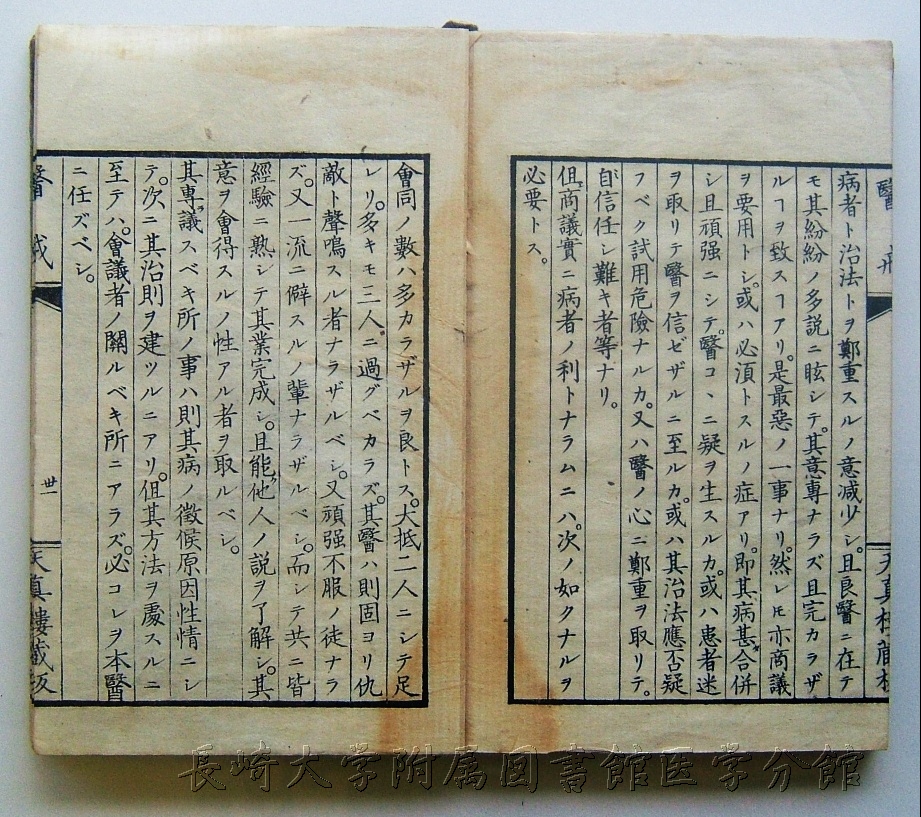 醫戒
天眞樓藏板
病者ト治法トヲ鄭重スルノ意減少シ。且良醫ニ在テ
モ其紛紛ノ多説ニ眩シテ。其意專ナラズ且完カラザ
ルヿヲ致スヿアリ。是最惡ノ一事ナリ。然レ𪜈亦商議
ヲ要用トシ。或ハ必須トスルノ症アリ。即其病甚。合併
シ且頑强ニシテ。醫コヽニ疑ヲ生スルカ。或ハ患者迷
ヲ取リテ醫ヲ信ゼザルニ至ルカ。或ハ其治法應否疑
フベク試用危險ナルカ。又ハ醫ノ心ニ鄭重ヲ取リテ。
自信任シ難キ者等ナリ。
但商議實ニ病者ノ利トナラムニハ。次ノ如クナルヲ
必要トス。
會同ノ數ハ多カラザルヲ良トス。大抵二人ニシテ足
レリ。多キモ三人。ニ過グベカラズ。其醫ハ則固ヨリ仇
敵ト聲鳴スル者ナラザルベシ。又頑强不服ノ徒ナラ
ズ。又一流ニ僻スルノ輩ナラザルベシ。而シテ共ニ皆
經驗ニ熟シテ其業完成シ。且能他人ノ説ヲ了解シ。其
意ヲ會得スルノ性アル者ヲ取ルベシ。
其專議スベキ所ノ事ハ則其病ノ徴候原因性情ニシ
テ。次ニ其治則ヲ建ツルニアリ。但其方法ヲ處スルニ
至テハ。會議者ノ關ルベキ所ニアラズ。必コレヲ本醫
ニ任ズベシ。
醫戒
廿一
天眞樓藏板
長崎大学附属図書館医学分館